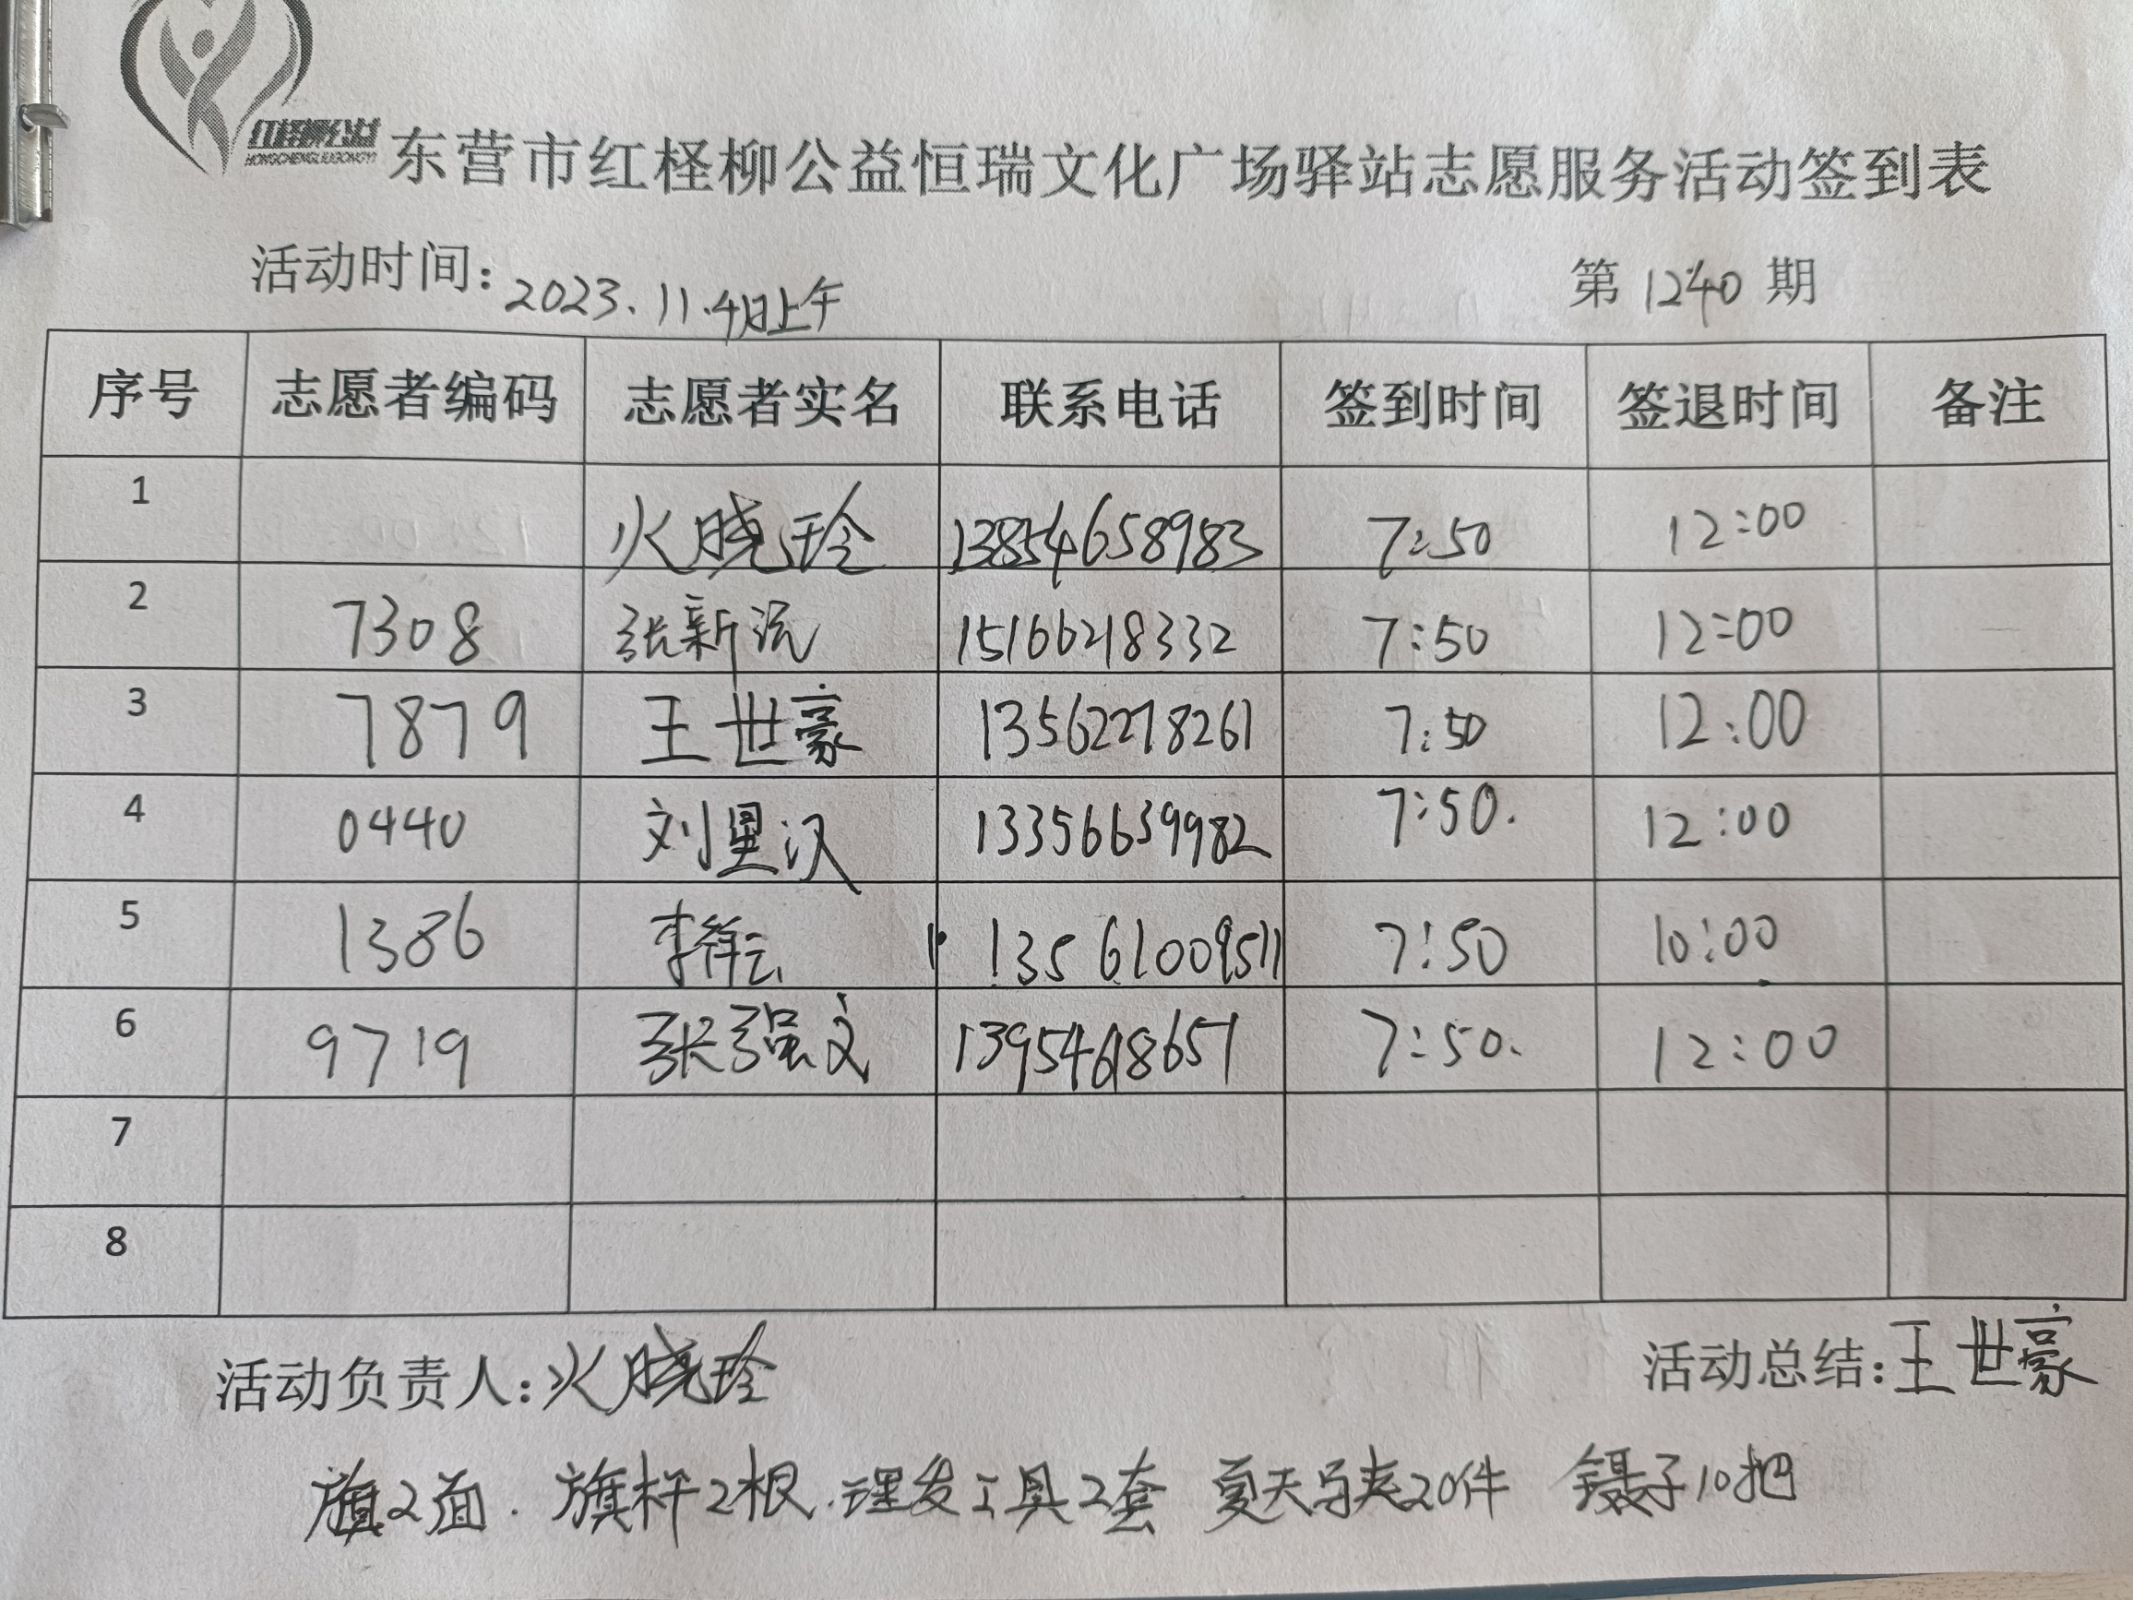 红柽柳公益
HONGCHENGLIUGONGYI
东营市红柽柳公益恒瑞文化广场驿站志愿服务活动签到表
活动时间：2023.11.4日上午 第1240期
序号 志愿者编码 志愿者实名 联系电话 签到时间 签退时间 备注
1 火晓玲 13854658983 7:50 12:00
2 7308 张新沅 15166218332 7:50 12:00
3 7879 王世豪 13562278261 7:50 12:00
4 0440 刘星汉 13356639982 7:50. 12:00
5 1386 李祥云 13561009511 7:50 10:00
6 9719 张强文 13954618651 7:50. 12:00
7
8
活动负责人：火晓玲 活动总结：王世豪
旗2面. 旗杆2根.理发工具2套 夏天马夹20件 镊子10把